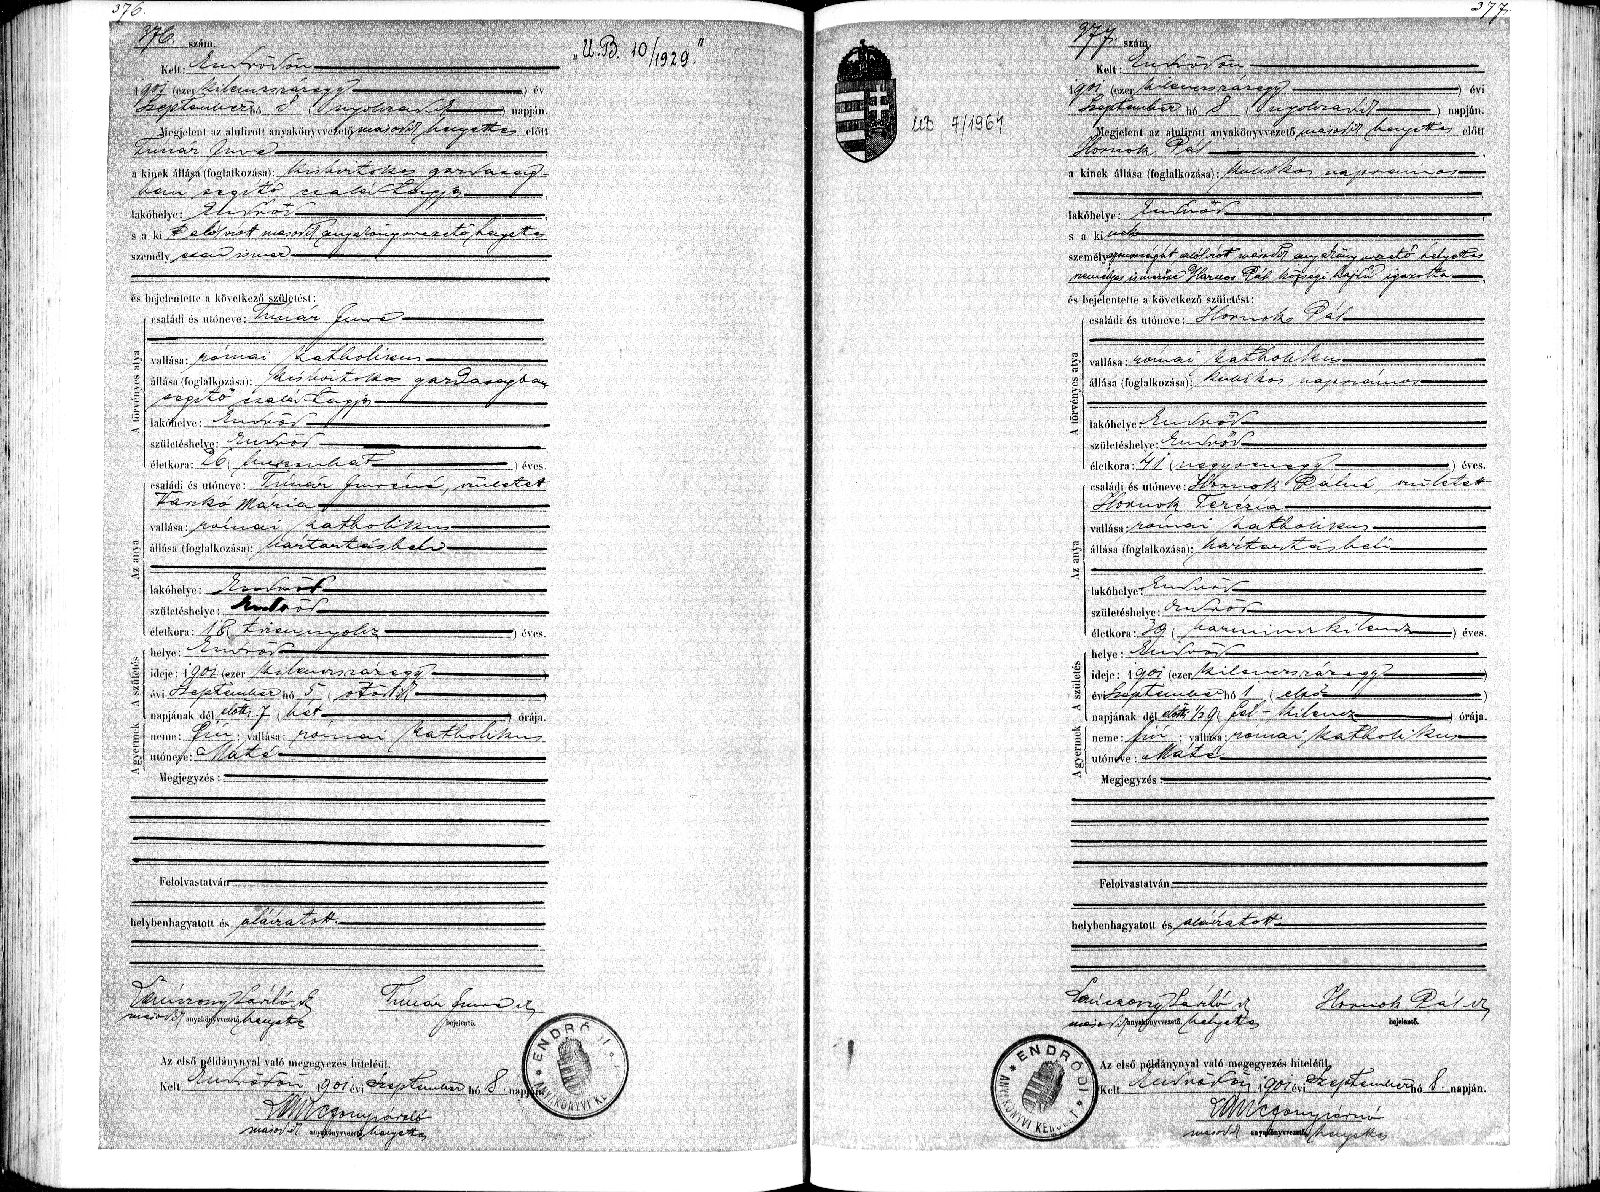 376.
376. szám.
Kelt: Endrődön
1901 (ezer kilenczszázegy) év
szeptember hó 8 (nyolczadik) napján.
Megjelent az alulirott anyakönyvvezető második helyettes előtt
Timár Imre
a kinek állása (foglalkozása): kisbirtokos gazdaság-
ban segítő családtagja
lakóhelye: Endrőd
s a ki t alólirott második anyakönyvvezető helyettes
személy esen ismer
és bejelentette a következő születést:
A törvényes atya
családi és utóneve: Timár Imre
vallása: római katholikus
állása (foglalkozása): kisbirtokos gazdaságban
segítő családtagja
lakóhelye: Endrőd
születéshelye: Endrőd
életkora: 26 (huszonhat) éves.
Az anya
családi és utóneve: Timár Imréné, született
Tankó Mária
vallása: római katholikus
állása (foglalkozása): háztartásbeli
lakóhelye: Endrőd
születéshelye: Endrőd
életkora: 18 (tizennyolcz) éves.
A születés
helye: Endrőd
ideje: 1901 (ezer kilenczszázegy)
évi szeptember hó 5 (ötödik)
napjának dél előtti 7 (hét) órája.
A gyermek
neme: fiú; vallása: római katholikus
utóneve: Máté
Megjegyzés:
Felolvastatván
helybenhagyatott és aláiratott.
László
második anyakönyvvezető helyettes
Timár Imre
bejelentő.
Az első példánynyal való megegyezés hiteléül.
Kelt Endrődön 1901 évi szeptember hó 8. napján
második anyakönyvvezető helyettes
ENDRŐDI
ANYAKÖNYVI KE
„U.B. 10/1929."
377.
377. szám.
Kelt: Endrődön,
1901 (ezer kilenczszázegy) évi
szeptember hó 8 (nyolczadik) napján.
Megjelent az alulirott anyakönyvvezető második helyettes előtt
Hornok Pál
a kinek állása (foglalkozása): kubikos napszámos
lakóhelye: Endrőd
s a ki nek
személyazonosságát alólirott második anyakönyvvezető helyettes
személyes ismerőse Pál községi hajdú igazolta
és bejelentette a következő születést:
A törvényes atya
családi és utóneve: Hornok Pál
vallása: római katholikus
állása (foglalkozása): kubikos napszámos
lakóhelye: Endrőd
születéshelye: Endrőd
életkora: 41 (negyvenegy) éves.
Az anya
családi és utóneve: Hornok Pálné, született
Hornok Terézia
vallása: római katholikus
állása (foglalkozása): háztartásbeli
lakóhelye: Endrőd
születéshelye: Endrőd
életkora: 39 (harminczkilencz) éves.
A születés
helye: Endrőd
ideje: 1901 (ezer kilenczszázegy)
évi szeptember hó 1 (első)
napjának dél előtti ½9 (fél-kilencz) órája.
A gyermek
neme: fiú; vallása: római katholikus
utóneve: Máté
Megjegyzés:
Felolvastatván
helybenhagyatott és aláiratott.
László
második anyakönyvvezető helyettes
Hornok Pál
bejelentő.
Az első példánynyal való megegyezés hiteléül.
Kelt Endrődön 1901 évi szeptember hó 8. napján.
második anyakönyvvezető helyettes
ENDRŐDI
ANYAKÖNYVI
UB 7/1964